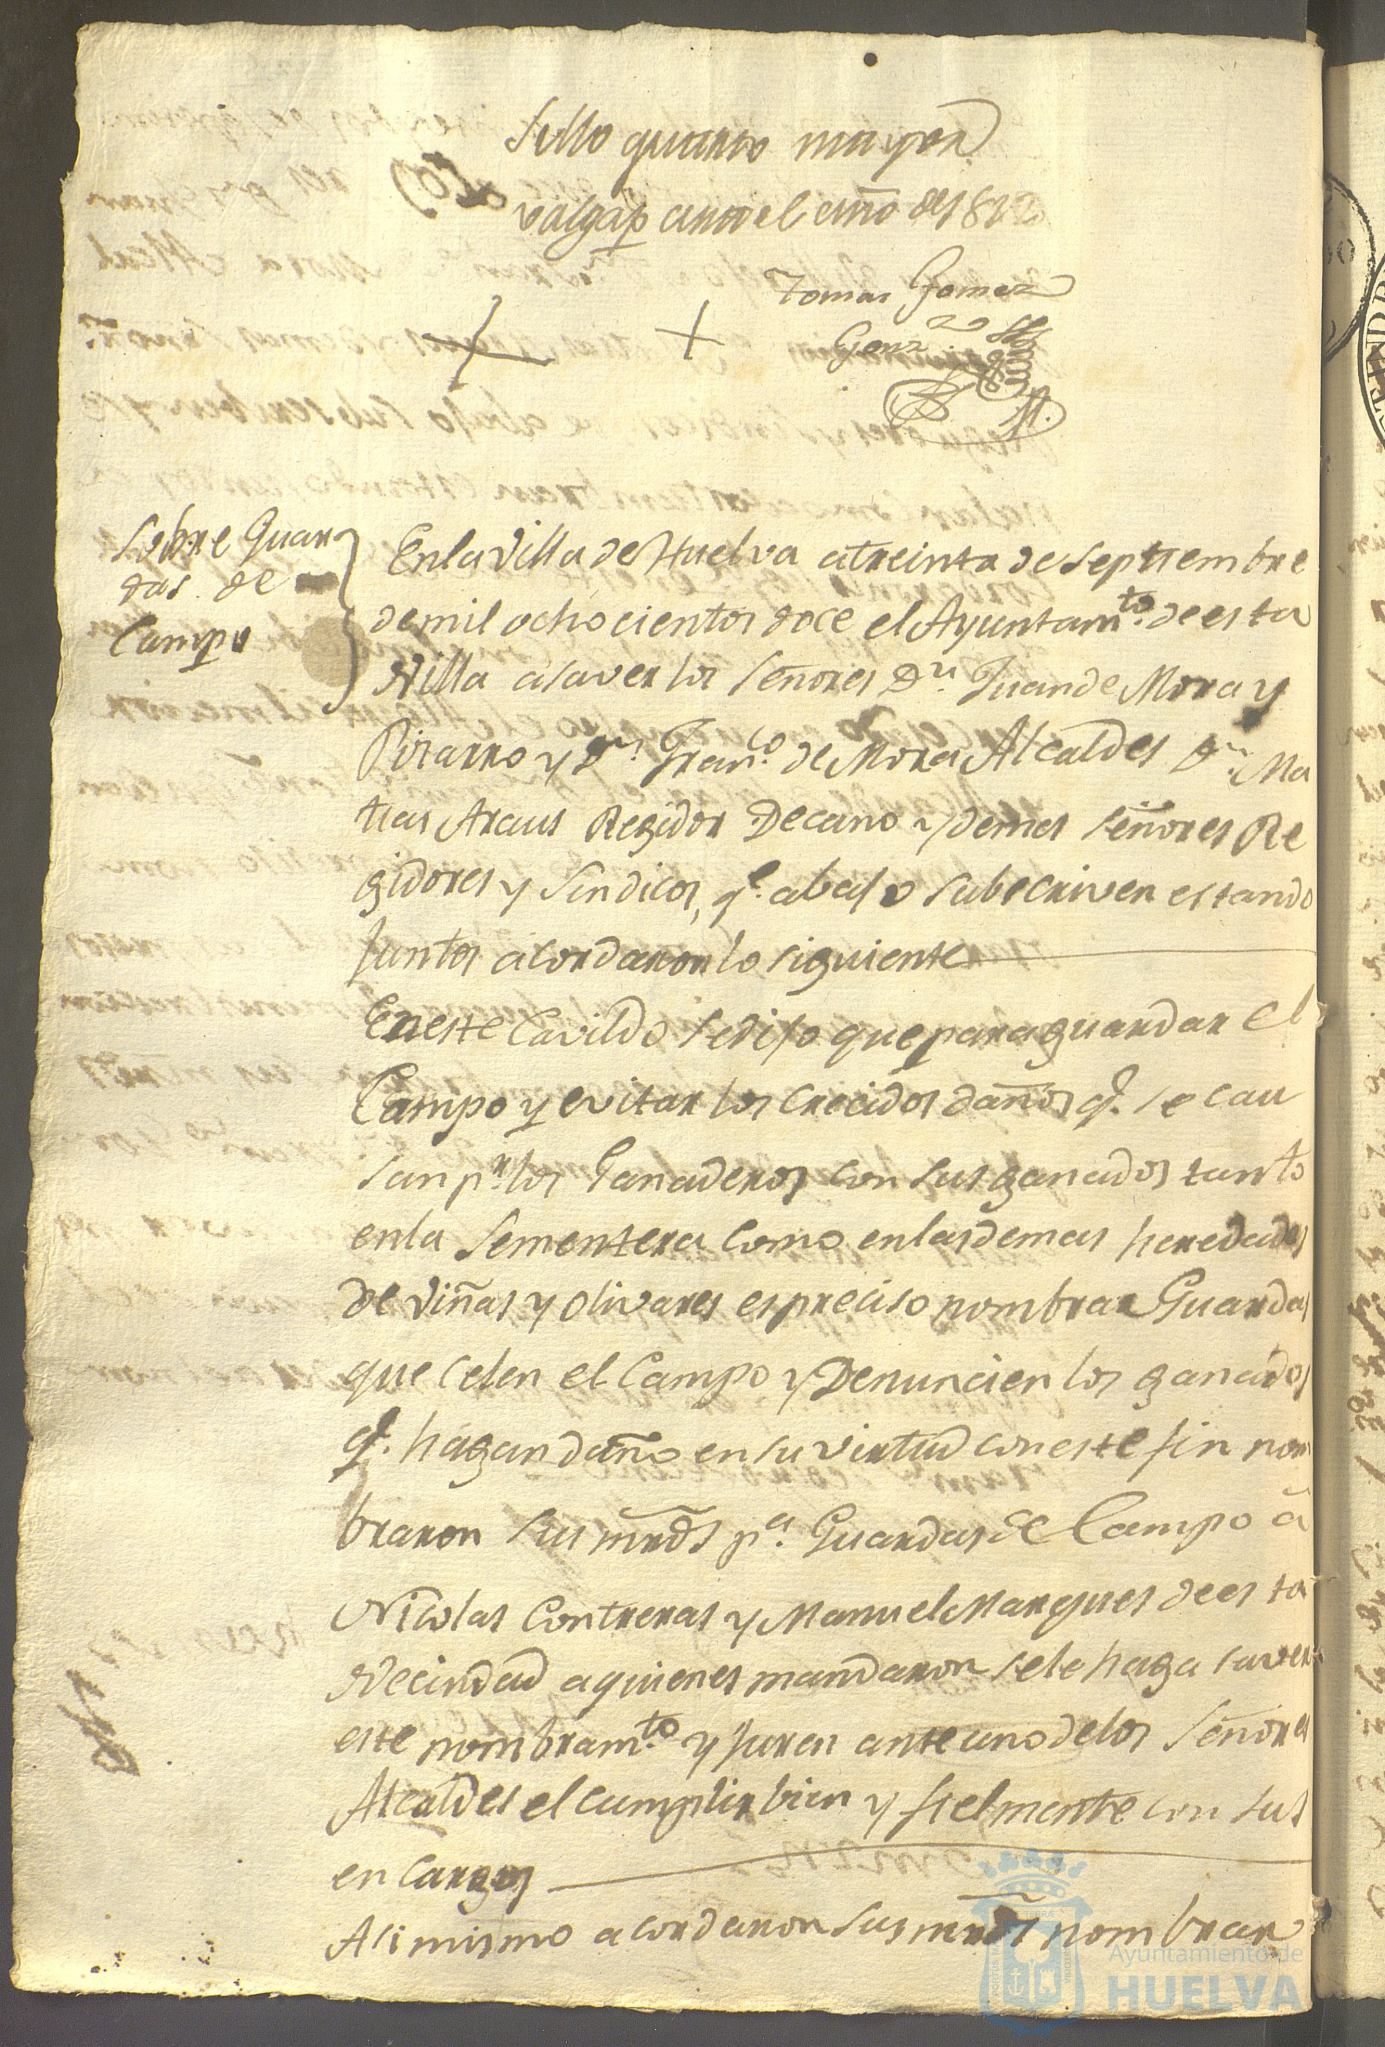 Sello quarto mayor
valga p. ante el año de 1812
Tomas Gomez
Gonz.
Sobre Guar
das de
Campo
En la Villa de Huelva a treinta de Septiembre
de mil ochocientos doce el Ayuntam.to de esta
Villa a saver los Señores D.n Juan de Mora y
Pizarro y D.n Fran.co de Mora Alcaldes D.n Ma
tias Araus Regidor Decano y demas Señores Re
gidores y Sindicos, q.e abaxo subscriven estando
juntos acordaron lo siguiente
En este Cavildo se dijo que para guardar el
Campo y evitar los crecidos daños q.e se cau
san p.r los Ganaderos con sus ganados tanto
en la Sementera como en las demas heredades
de viñas y olivares es preciso nombrar Guardas
que celen el Campo y Denuncien los ganados
q.e hagan daño en su virtud con este fin nom
braron sus mrds p.a Guardas de Campo a
Nicolas Contreras y Manuel Marques de esta
Vecindad a quienes mandaron se le haga saver
este nombram.to y juren ante uno de los Señores
Alcaldes el cumplir bien y fielmente con sus
encargos
Asi mismo acordaron sus mrds nombrar
Ayuntamiento de
HUELVA